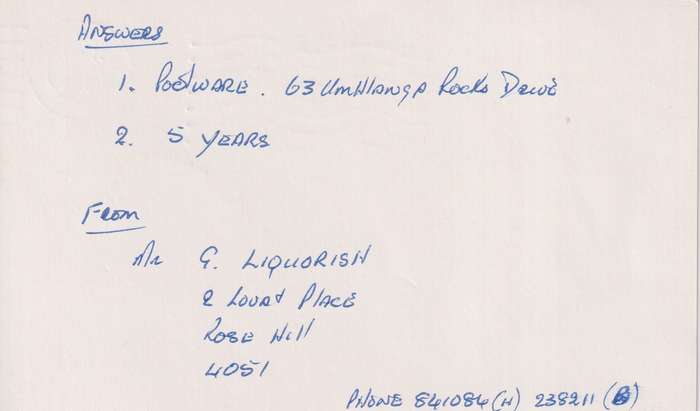 ANSWERS
1. POOLWARE. 63 UMHLANGA ROCKS DRIVE
2. 5 YEARS
FROM
Mr G. LIQUORISH
2 Place
ROSE Hill
4051
PHONE 841084 (H) 238211 (B)